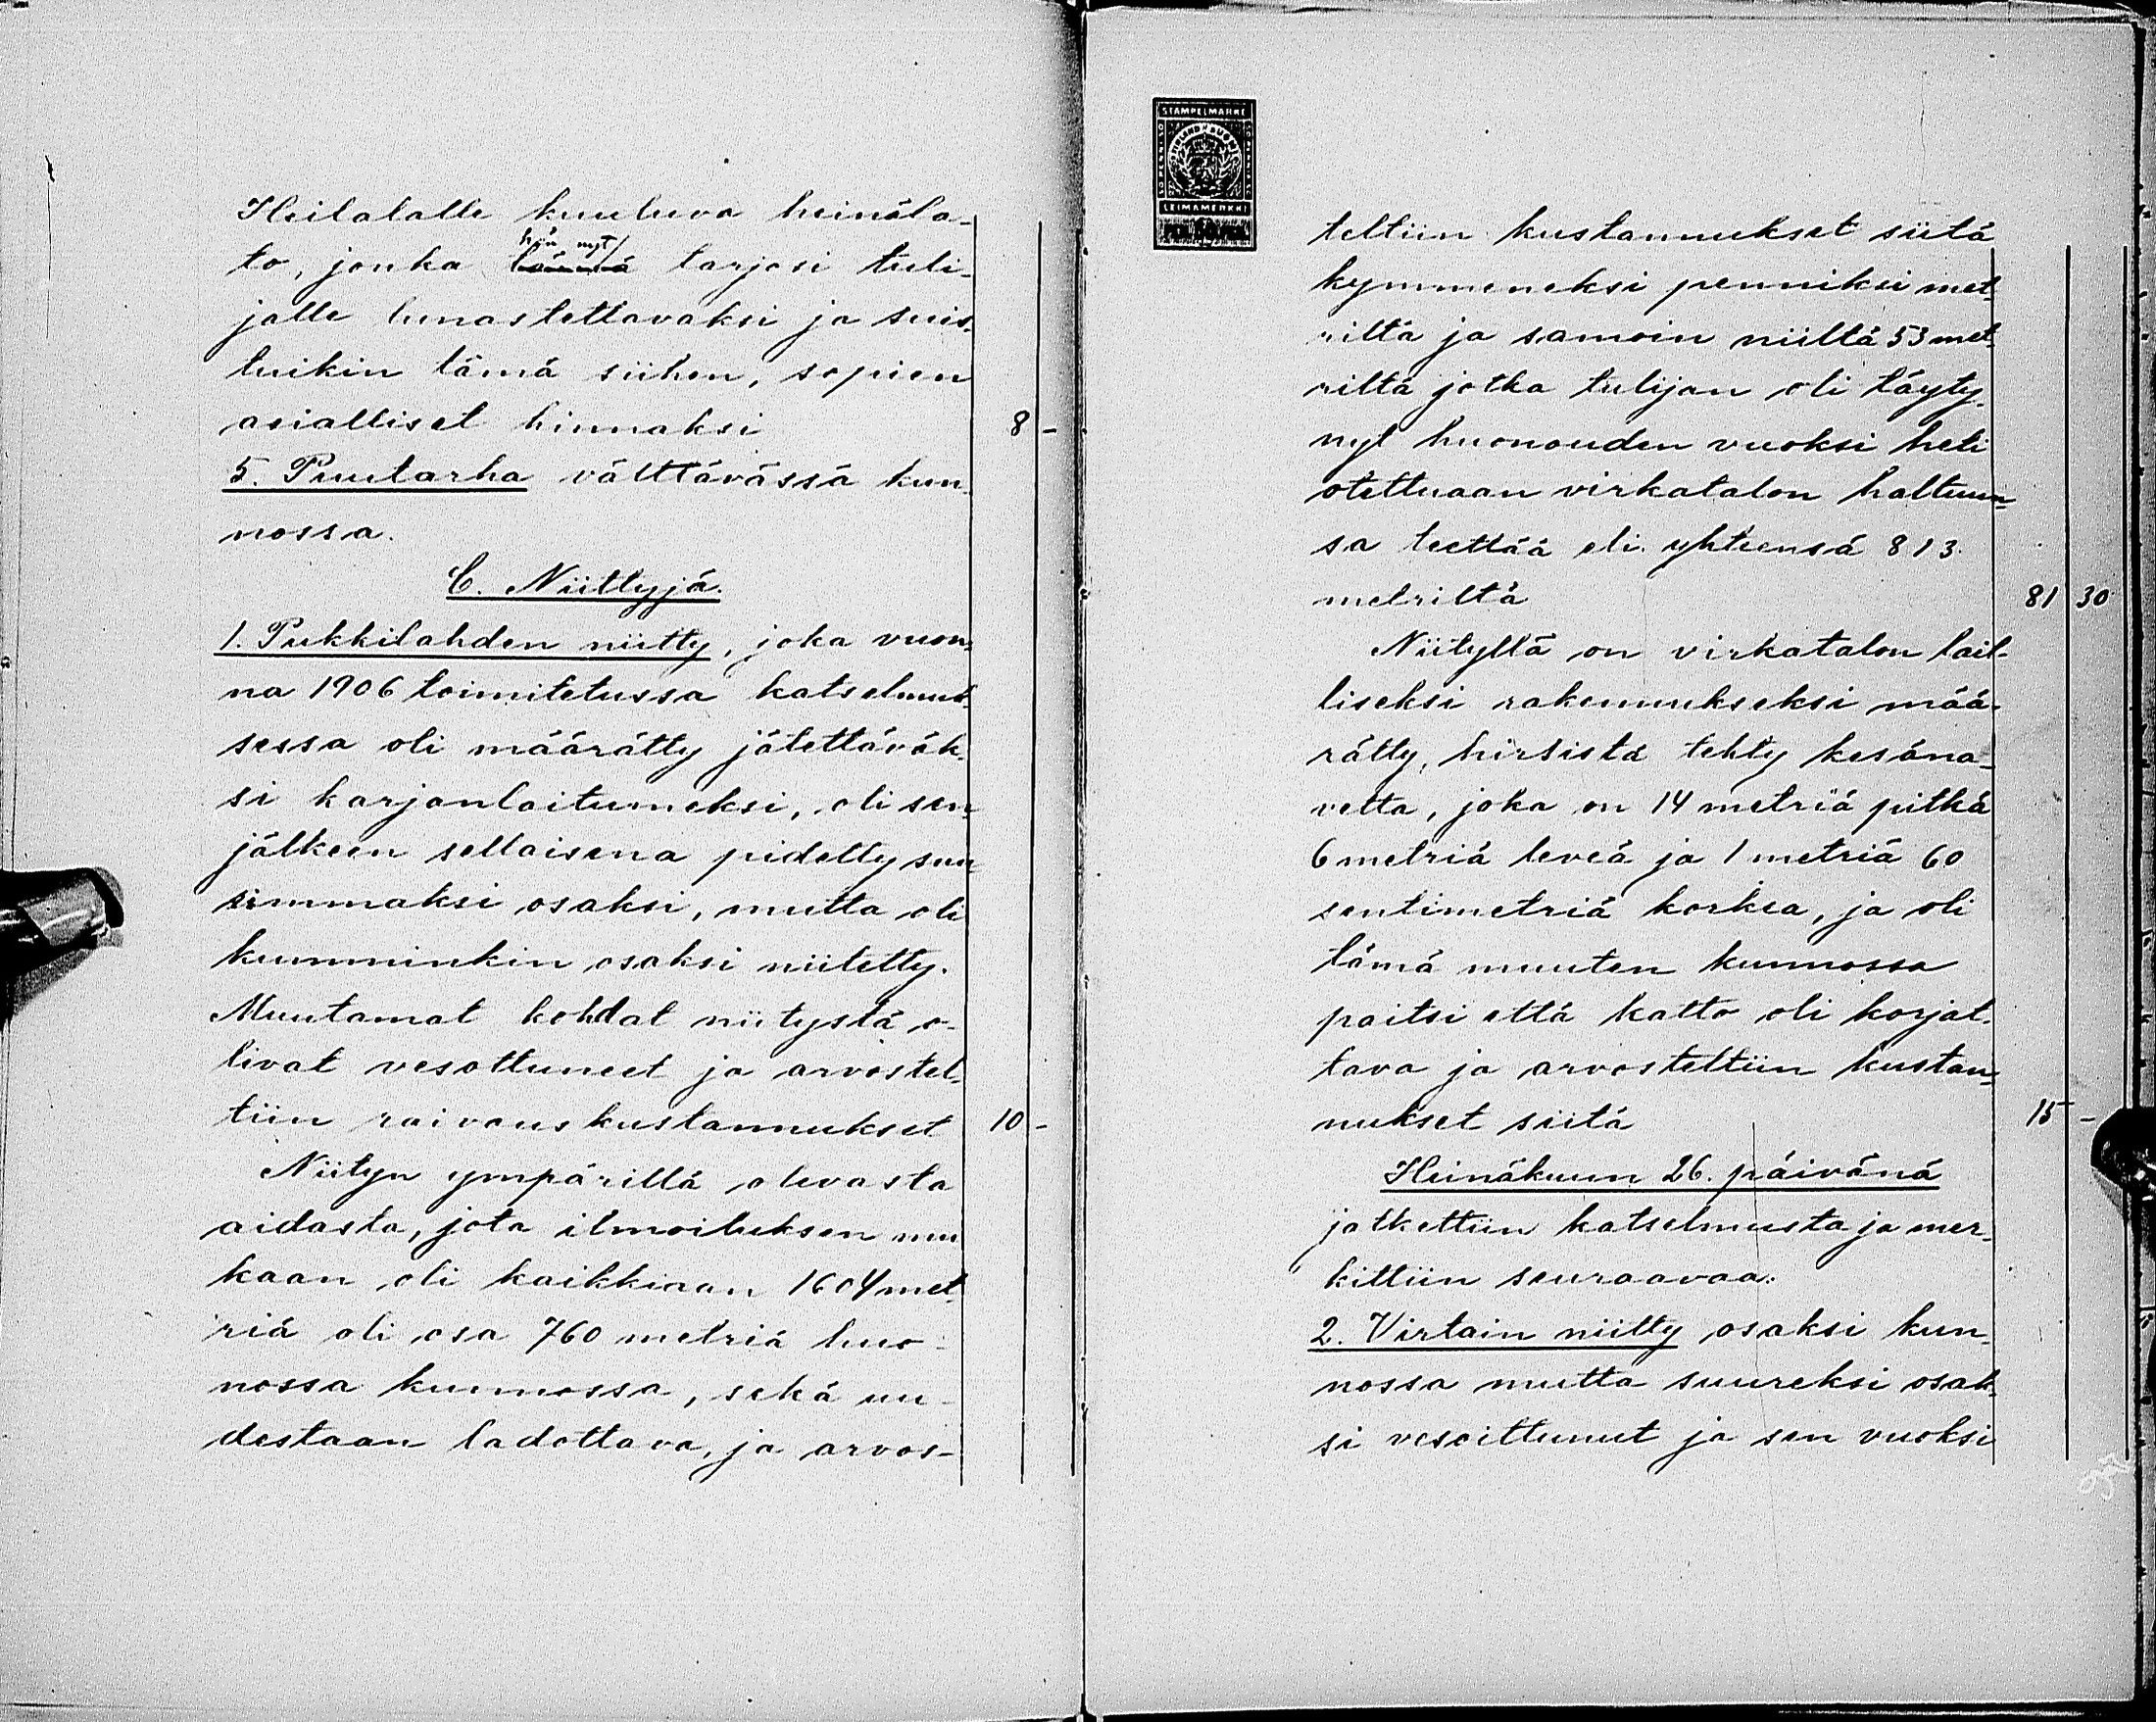 Heilalalle kuuluva heinäla-
hän nyt
to, jonka tämä tarjosi tuli-
jalle lunastettavaksi ja suis-
tuikin tämä siihen, sopien
asialliset hinnaksi 8 -
5. Puutarha välttävässä kun-
nossa.
C. Niittyjä.
1. Pukkilahden niitty, joka vuon-
na 1906 toimitetussa katselmuk-
sessa oli määrätty jätettäväk-
si karjanlaitumeksi, oli sen
jälkeen sellaisena pidetty suu-
rimmaksi osaksi, mutta oli
kumminkin osaksi niitetty.
Muutamat kohdat niitystä o-
livat vesottuneet ja arvostel-
tiin raivauskustannukset 10 -
Niityn ympärillä olevasta
aidasta, jota ilmoituksen mu
kaan oli kaikkiaan 1604 met-
riä oli osa 760 metriä huo-
nossa kunnossa, sekä uu-
destaan ladottava, ja arvos-
STAMPELMARKE
FINLAND SUOMI
LEIMAMERKKI
teltiin kustannukset siitä
kymmeneksi penniksi met-
riltä ja samoin niiltä 53 met-
riltä jotka tulijan oli täyty-
nyt huonouden vuoksi heti
otettuaan virkatalon haltuun-
sa teettää eli yhteensä 813
metriltä 81 30
Niityllä on virkatalon lail-
liseksi rakennukseksi mää-
rätty, hirsistä tehty kesäna-
vetta, joka on 14 metriä pitkä
6 metriä leveä ja 1 metriä 60
sentimetriä korkea, ja oli
tämä muuten kunnossa
paitsi että katto oli korjat-
tava ja arvosteltiin kustan-
nukset siitä 15 -
Heinäkuun 26. päivänä
jatkettiin katselmusta ja mer-
kittiin seuraavaa:
2. Virtain niitty osaksi kun-
nossa mutta suureksi osak-
si vesoittunut ja sen vuoksi